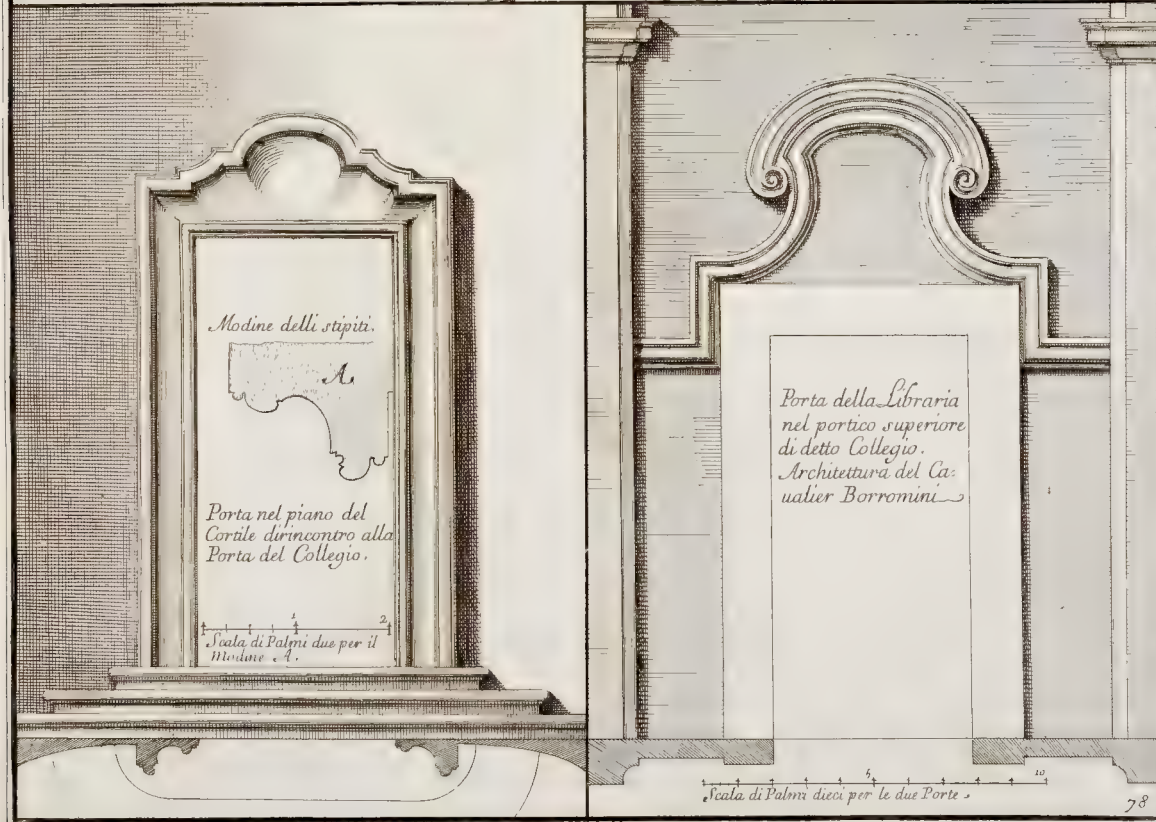 Modine delli stipiti.
A.
Porta nel piano del
Cortile dirincontro alla
Porta del Collegio.
1 2
Scala di Palmi due per il
Modine A.
Porta della Libraria
nel portico superiore
di detto Collegio.
Architettura del Ca:
ualier Borromini
5 10
Scala di Palmi dieci per le due Porte.
78